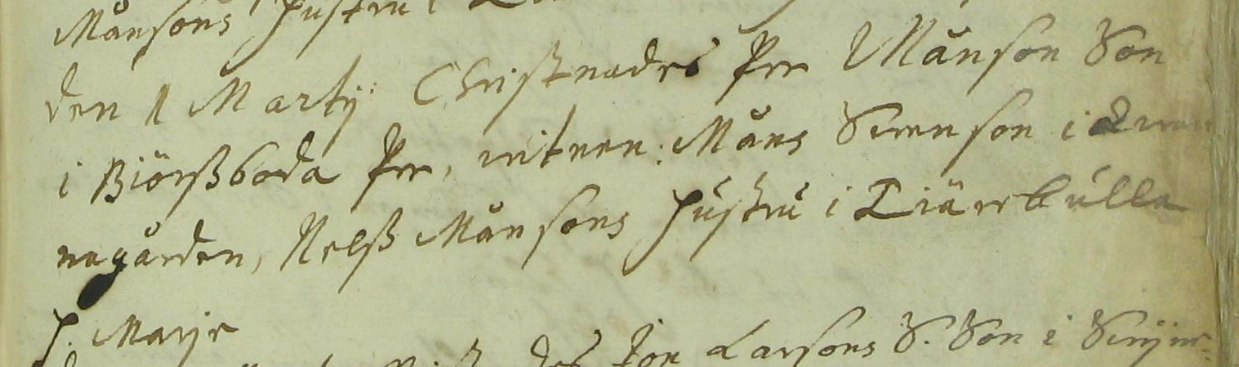 Månsons hustru i
den 1 Martij Christnades Per Månson Son
i Biörßboda Per, vitnen: Måns Svenson i Qvarn
nagården, Nelß Månsons hustru i Tiärrkulla
h. Marje
des Jon Larsons S. Son i